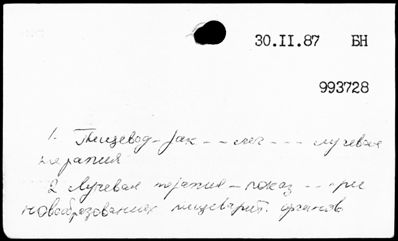 30.II.87 БН
993728
1. Пищевод - рак - - леч - - - лучевая
терапия
2 Лучевая терапия - показ - - - при
новообразованиях пищеварит. органов